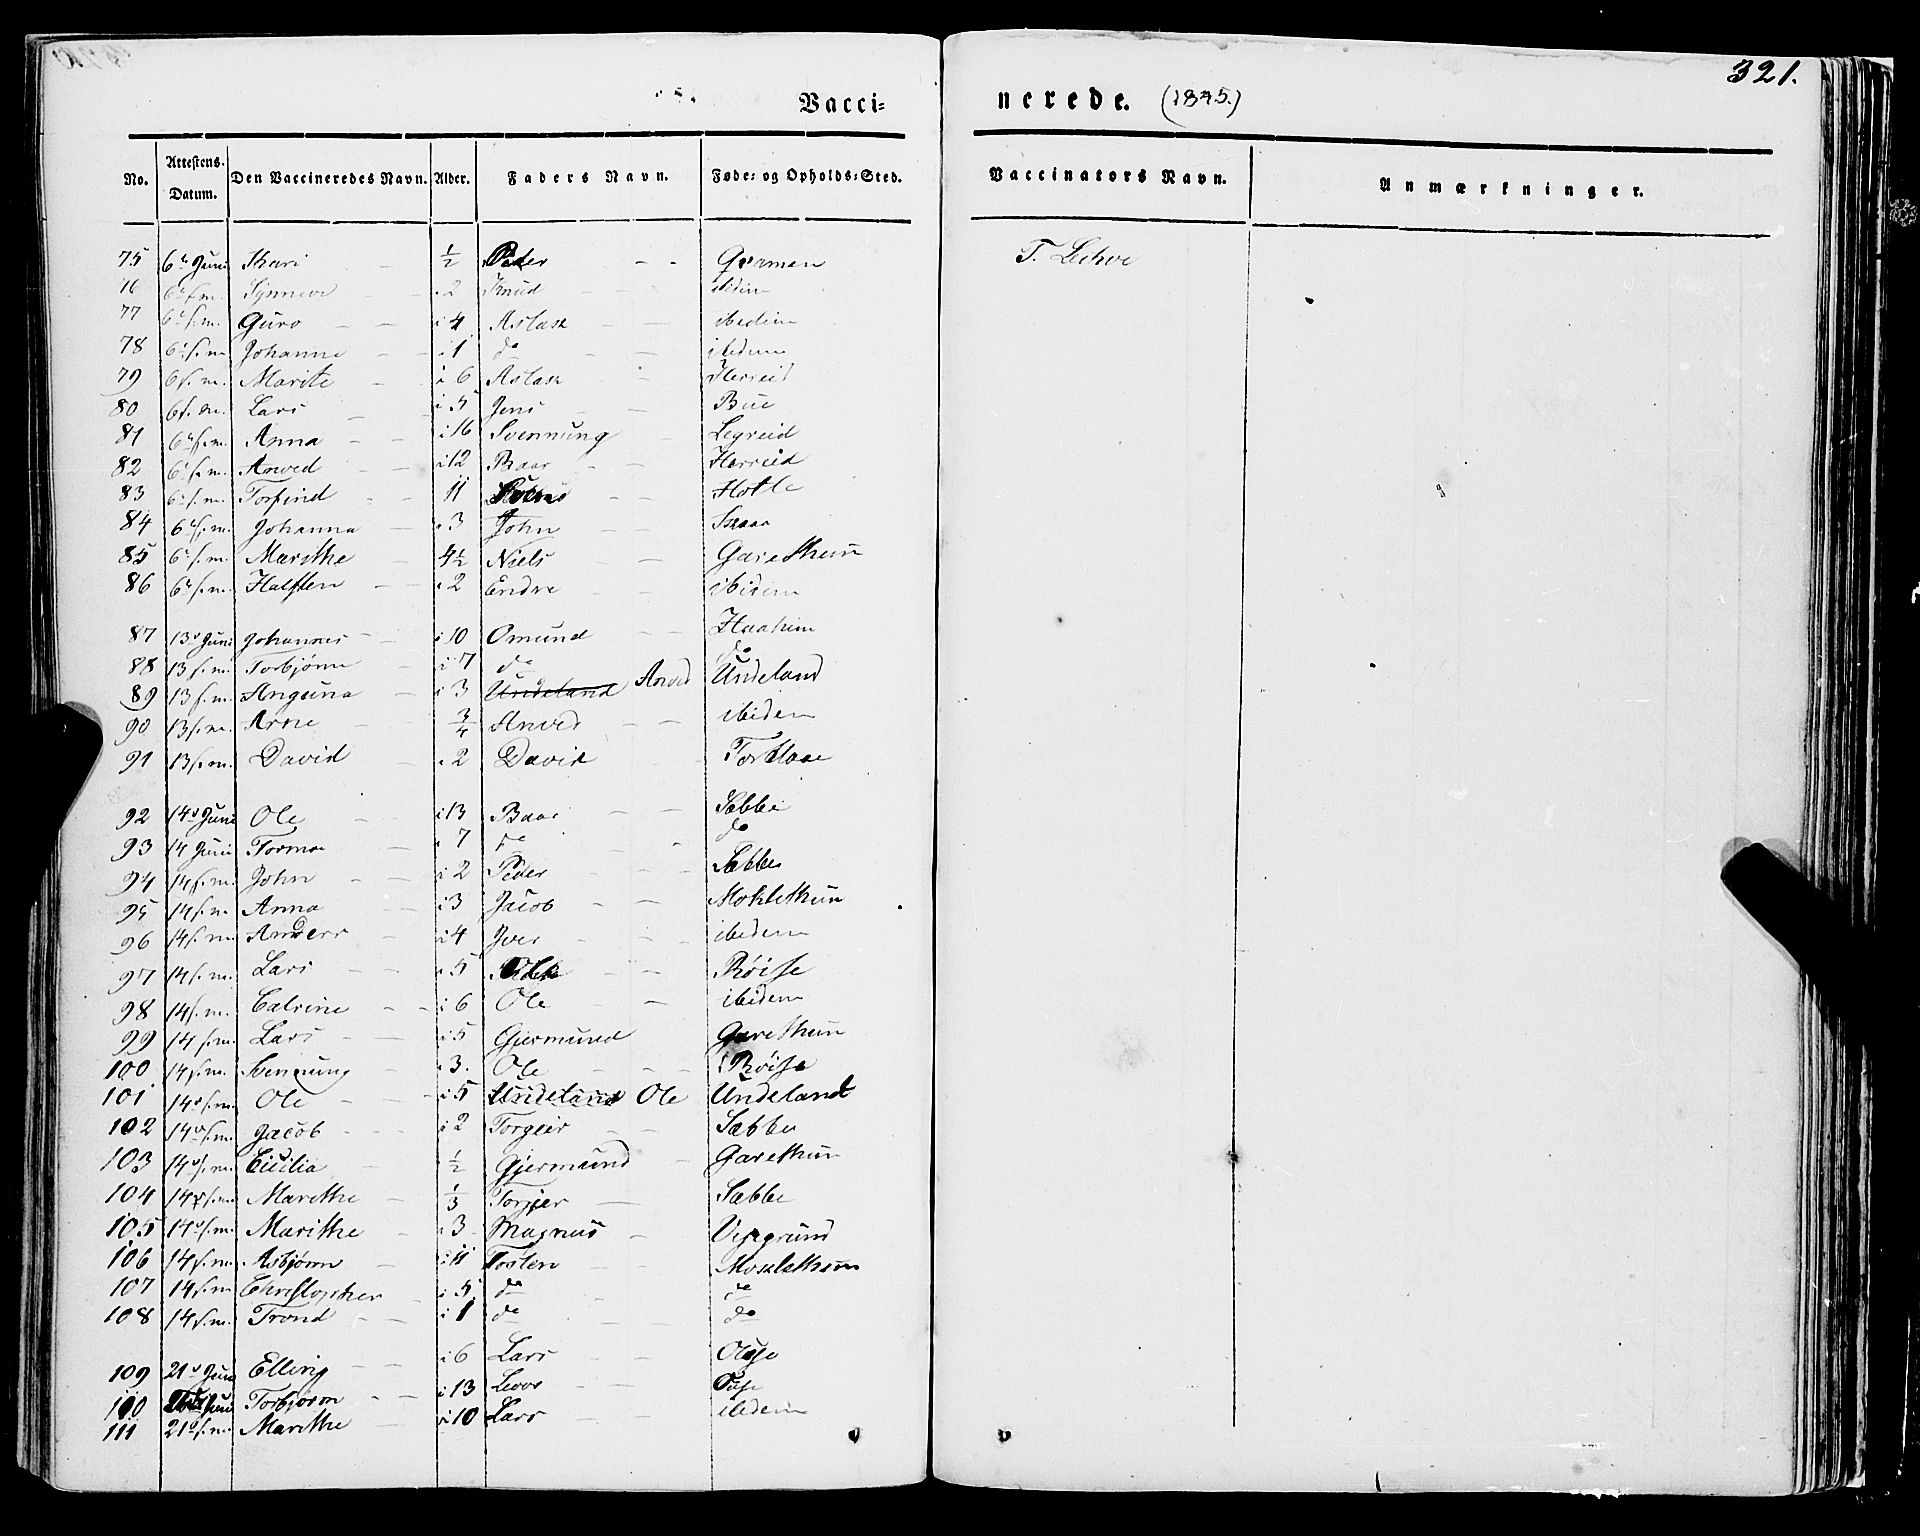 321.
Vacci= nerede. (1845.)
No. Attestens. Datum. Den Vaccineredes Navn. Alder. Faders Navn. Føde= og Opholds=Sted. Vaccinators Navn. Anmærkninger.
75 6te Juni Kari — ½ Peder — — Qvamen T. Lekve
76 6te s.m. Synneve — — i 2 Knud — — ibidem
77 6te s.m. Guro — — i 4 Aslak — — ibidem
78 6te s.m. Johanna — — i 1 do — — ibidem
79 6 s.m. Marite — i 6 Aslak — Herreid
80 6 s.m. Lars — i 5 Jens — — Bue
81 6te s.m. Anna — — i 16 Svennung — Legreid
82 6te s.m. Anved — — i 12 Baar — — Herreid
83 6te s.m. Torfind — — 11 — — Hotle
84 6te s.m. Johanna — i 3 John — Skaar
85 6te s.m. Marithe — 4½ Niels — — Garethun
86 6te s.m. Halsten — — i 2 Endre — — ibidem
87 13de Juni Johannes — i 10 Omund — — Haaheim
88 13 s.m. Torbjørn — i 7 do do
89 13 s.m. Anguna — i 3 Undeland Anved Undeland
90 13 s.m. Arne — — ¾ Anved — — ibidem
91 13 s.m. David — i 2 David — Torblaae
92 14de Juni Ole — i 13 Baar — — Sæbbe
93 14 Juni Tormo — i 7 do — do
94 14 s.m. John — — i 2 Peder — — Sæbbe
95 14 s.m. Anna — i 3 Jacob — — Moklethun
96 14 s.m. Anders — i 4 Iver — — ibidem
97 14 s.m. Lars — — i 5 — — Røise
98 14 s.m. Catrine — — i 6 Ole — — ibidem
99 14 s.m. Lars — — i 5 Gjermund Garethun
100 14 s.m. Svennung — i 3. Ole — — Røise
101 14de s.m. Ole — — i 5 Undeland Ole Undeland
102 14de s.m. Jacob — — i 2 Torgeir — — Sæbbe
103 14de s.m. Cicilia — ½ Gjermund — Garethun
104 14de s.m. Marithe — ⅓ Torgjer — Sæbbe
105 14de s.m. Marithe — i 3 Magnus — Vigegrund
106 14 s.m. Asbjørn — i 11 Tosten — — Moklethun
107 14 s.m. Christopher — i 5 do — do
108 14 s.m. Trond — — i 1 do — do
109 21de Juni Elling — — i 6 Lars — — Oluse
110 Juni Torbjørn — — i 13 — —
111 21de s.m. Marithe — i 10 Lars — — ibidem